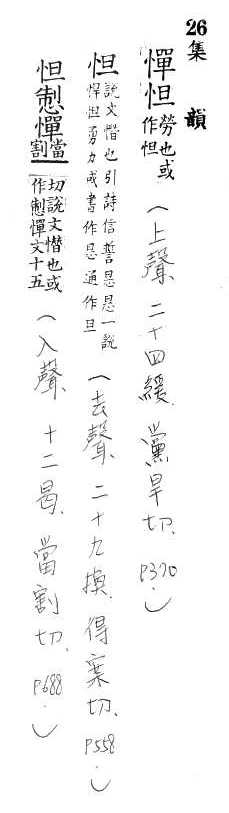 26 集 韻
憚怛 勞也或
作怛 (上聲、二十四緩、黨旱切、p370。)
怛 說文憯也引詩信誓㫜㫜一說
憚怛勇力或書作㫜通作旦 (去聲、二十九換、得案切、p558。)
怛㤴憚 當割 切說文憯也或
作㤴憚文十五 (入聲、十二曷、當割切、p688。)